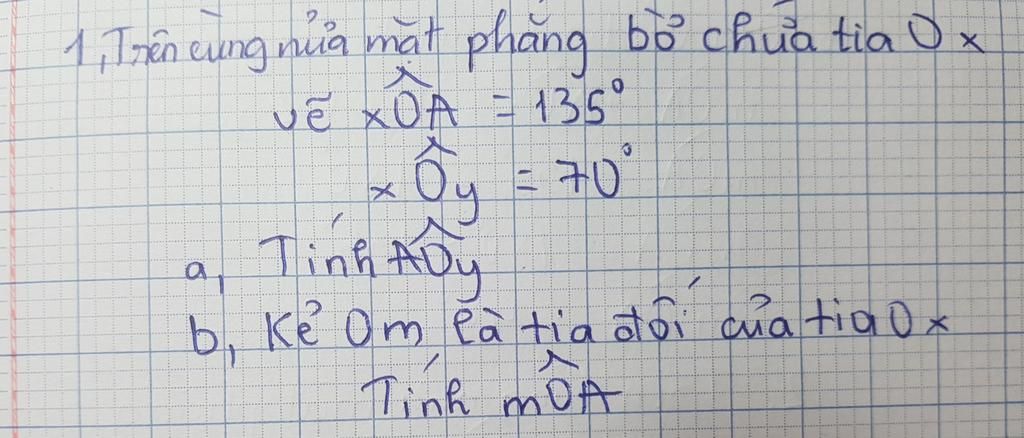 1, Trên cùng nửa mặt phẳng bờ chứa tia Ox
vẽ xÔA = 135°
xÔy = 70°
a, Tính AÔy
b, Kẻ Om là tia đối của tia Ox
Tính mÔA